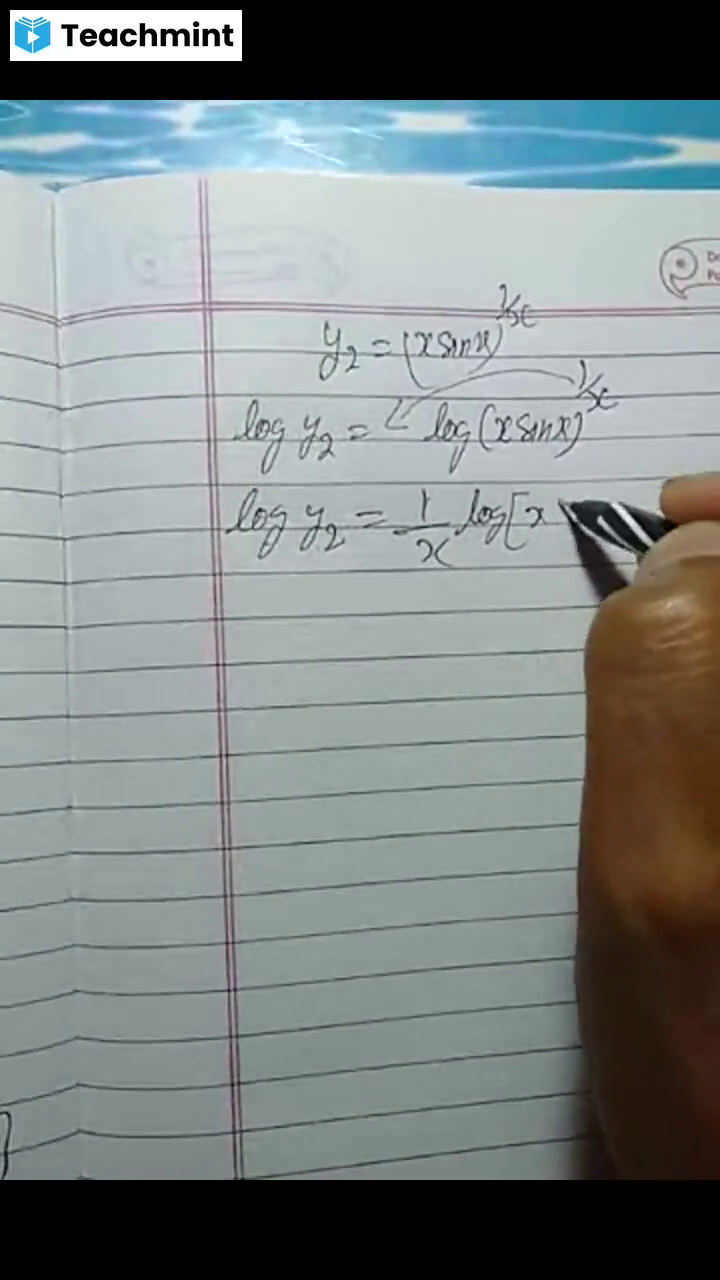 Teachmint
y₂ = (x sinx)^1/x
log y₂ = log(x sinx)^1/x
log y₂ = 1/x log[x